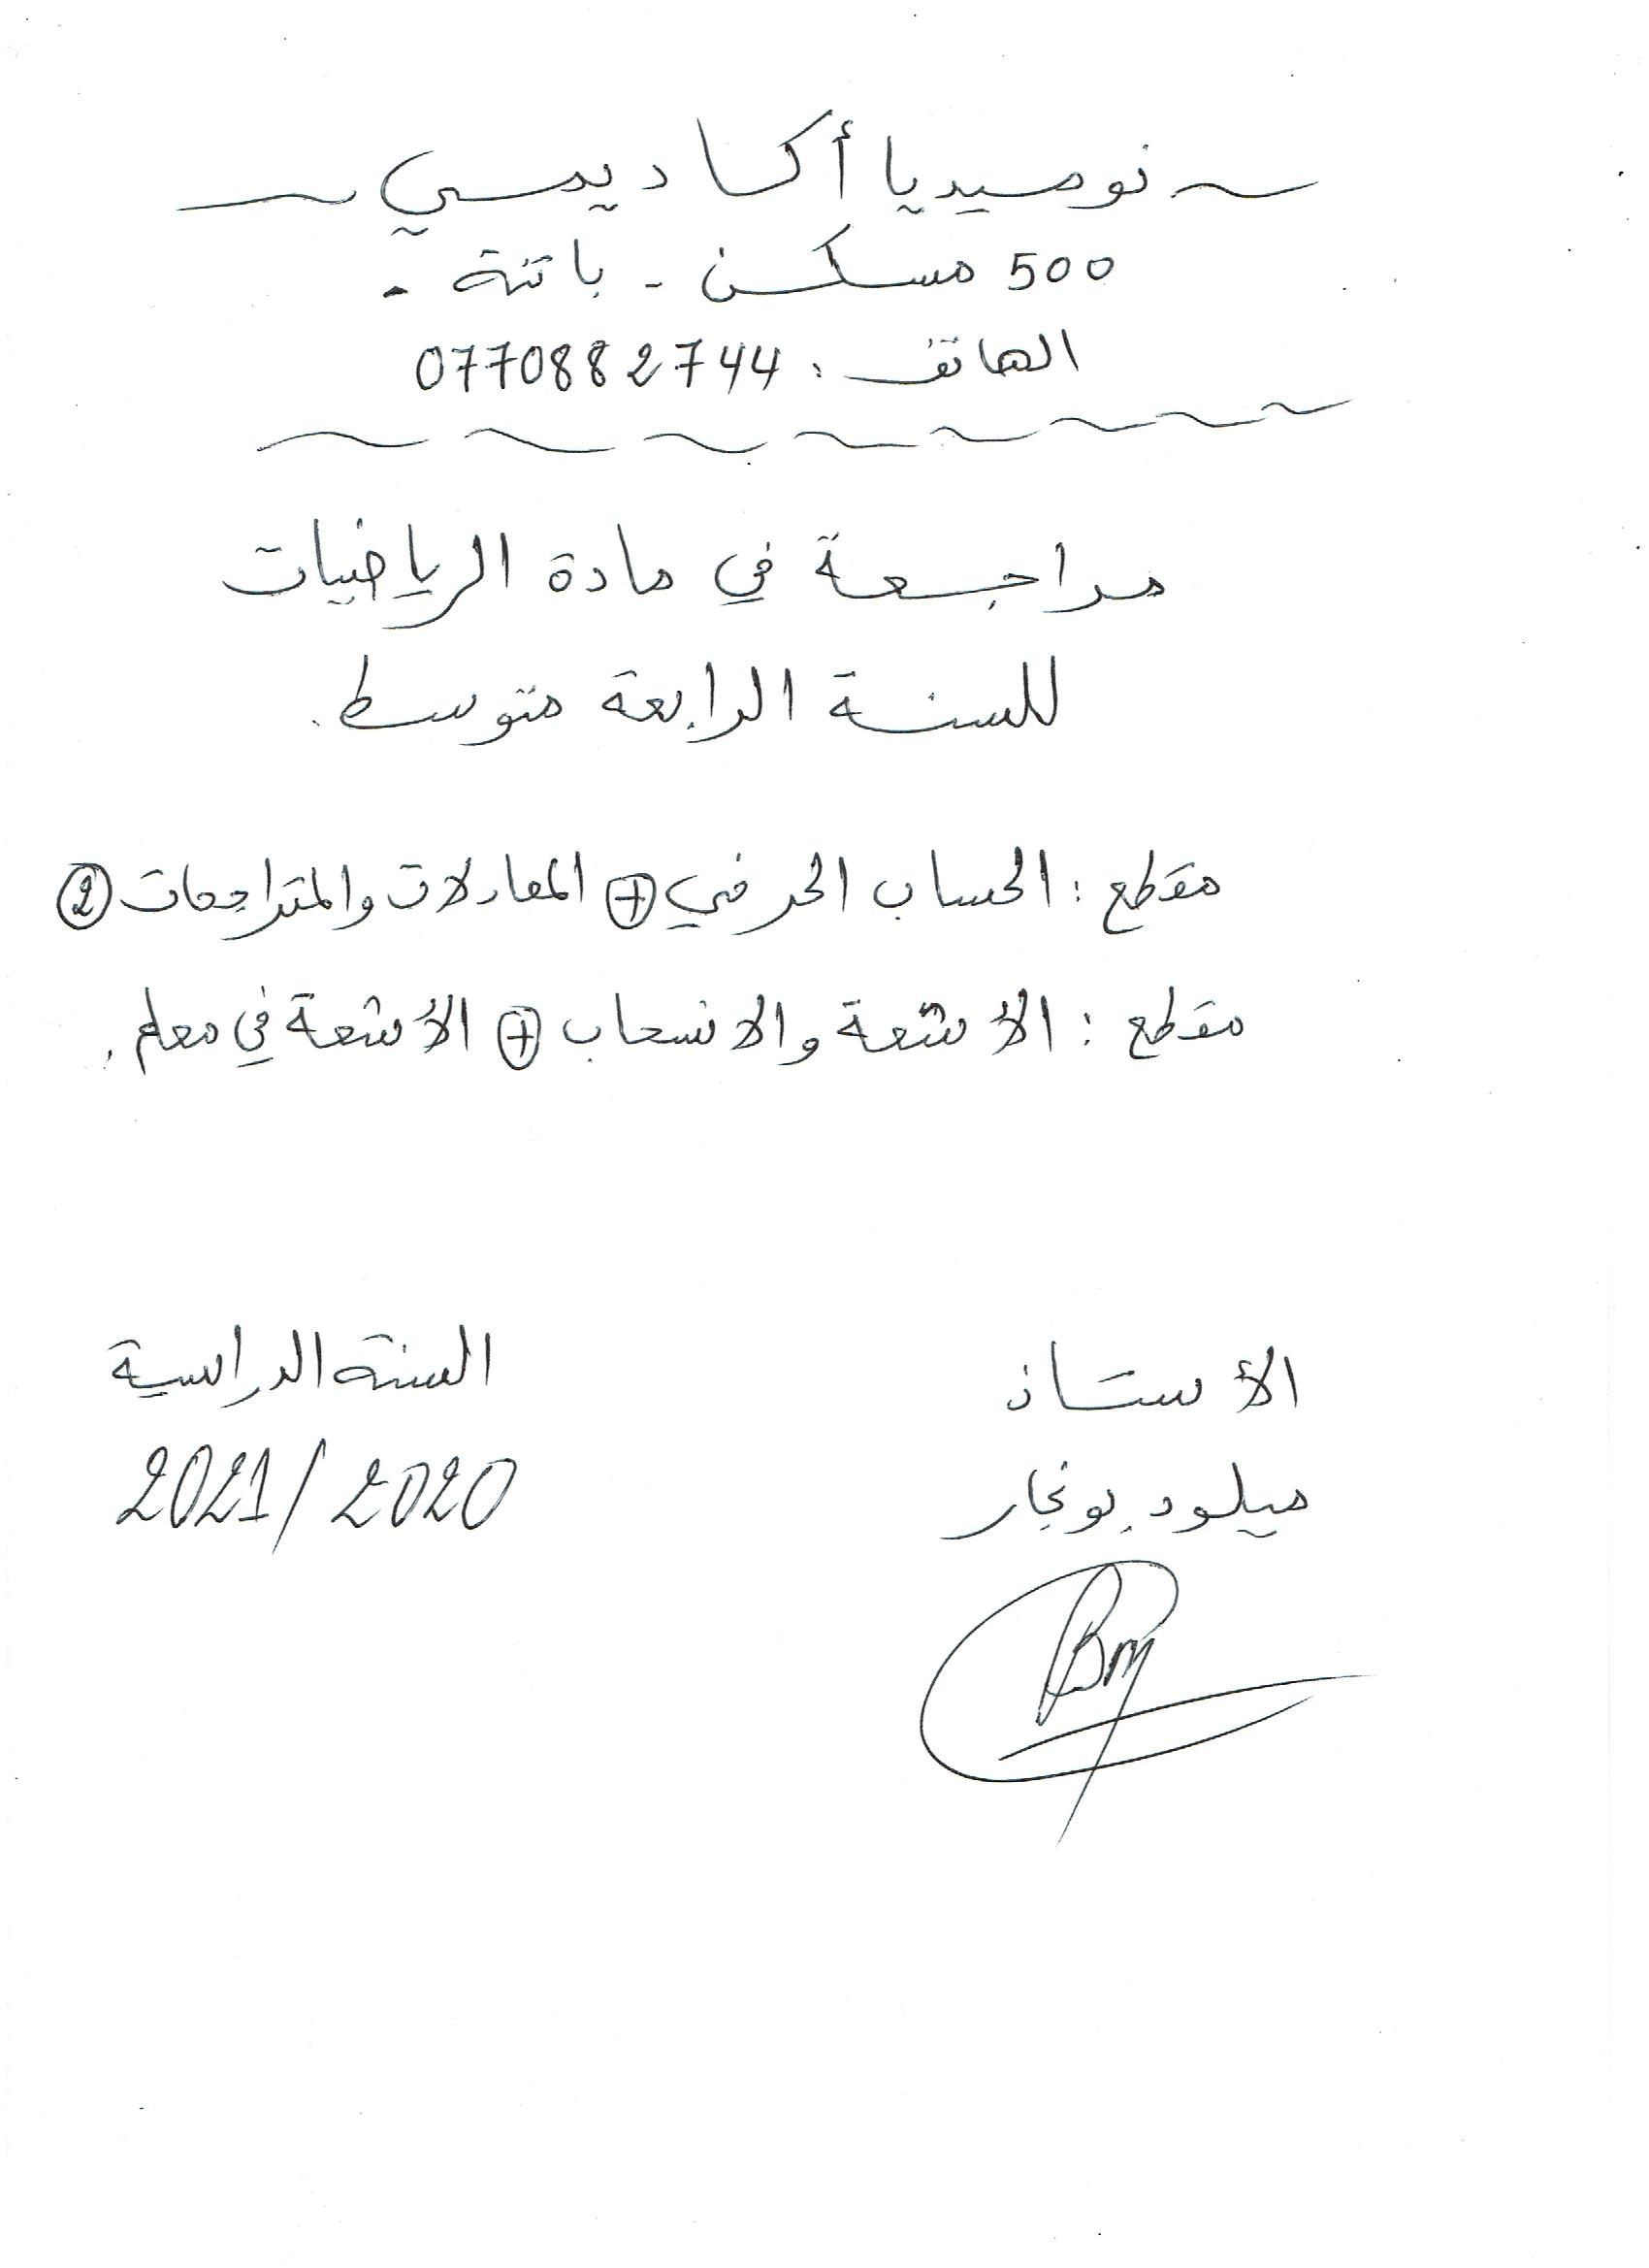 ~ نوميديا أكاديمي ~
500 مسكن - باتنة .
الهاتف : 0770882744
مراجعة في مادة الرياضيات
للسنة الرابعة متوسط.
مقطع : الحساب الحرفي ⊕ المعادلات والمتراجحات ②
مقطع : الأشعة والانسحاب ⊕ الأشعة في معلم .
الأستاذ
السنة الدراسية
ميلود بونجار
2021/2020
Bm